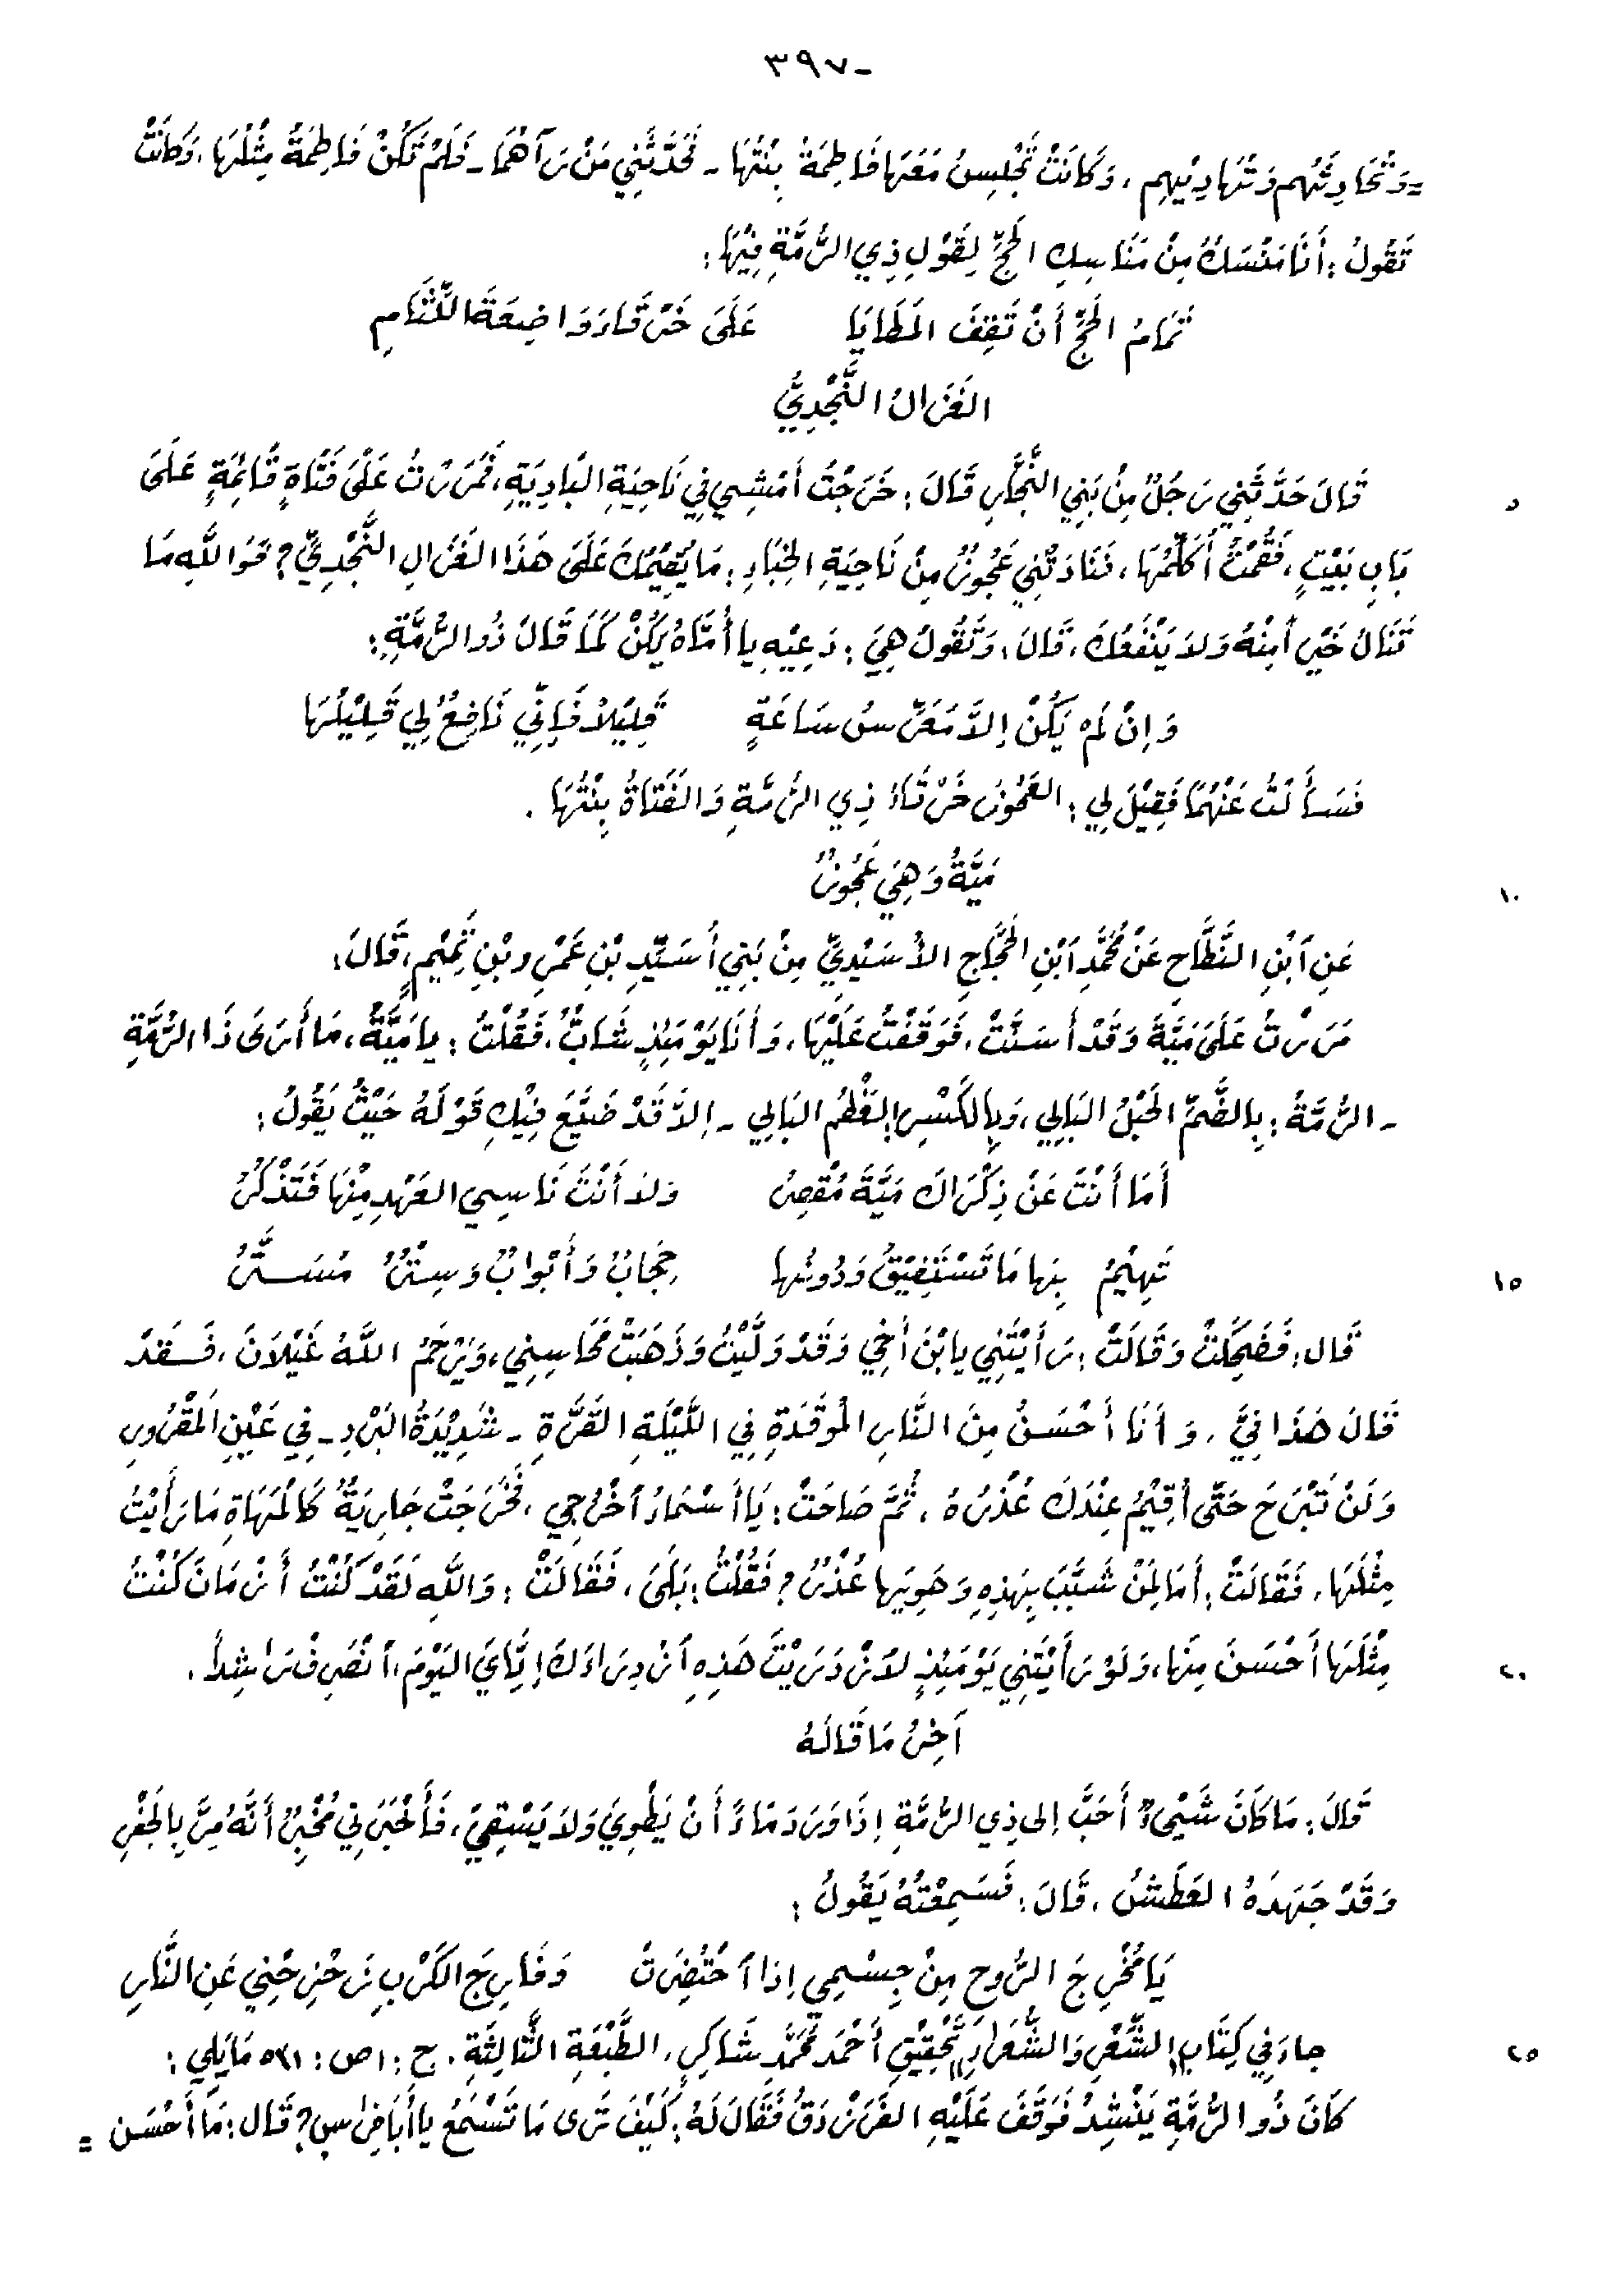 -٣٩٧
=وَتُحَادِثُهُم وَتُهَادِيْهِم، وَكَانَتْ تَجْلِسُ مَعَهَا فَاطِمَةُ بِنْتُهَا - فَحَدَّثَنِي مَنْ رَآهُمَا - فَلَمْ تَكُنْ فَاطِمَةُ مِثْلَهَا، وَكَانَتْ
تَقُولُ: أَنَا مَنْسَكٌ مِنْ مَنَاسِكِ الحَجِّ لِقَوْلِ ذِي الرُّمَّةِ فِيْهَا:
تَمَامُ الحَجِّ أَنْ تَقِفَ المَطَايَا عَلَى خَرْقَاءَ وَاضِعَةَ اللِّثَامِ
الغَزَالُ النَّجْدِيُّ
قَالَ حَدَّثَنِي رَجُلٌ مِنْ بَنِي النَّجَّارِ قَالَ: خَرَجْتُ أَمْشِي فِي نَاحِيَةِ البَادِيَةِ، فَمَرَرْتُ عَلَى فَتَاةٍ قَائِمَةٍ عَلَى ٥
بَابِ بَيْتٍ، فَقُمْتُ أُكَلِّمُهَا، فَنَادَتْنِي عَجُوزٌ مِنْ نَاحِيَةِ الخِبَاءِ: مَا يُقِيْمُكَ عَلَى هَذَا الغَزَالِ النَّجْدِيِّ؟ فَوَاللَّهِ مَا
تَنَالُ خَيْرَاً مِنْهُ وَلاَ يَنْفَعُكَ، قَالَ: وَتَقُولُ هِيَ: دَعِيْهِ يا أُمَّاهُ يَكُنْ كَمَا قَالَ ذُو الرُّمَّةِ:
وَإِنْ لَمْ يَكُنْ إِلاَّ مُعَرَّسُ سَاعَةٍ قَلِيْلاً فَإِنِّي نَافِعٌ لِي قَلِيْلُهَا
فَسَأَلْتُ عَنْهُمَا فَقِيْلَ لِي: العَجُوزُ خَرْقَاءُ ذِي الرُّمَّةِ وَالفَتَاةُ بِنْتُهَا.
مَيَّةُ وَهِيَ عَجُوزٌ ١٠
عَنِ ابْنِ النَّطَّاحِ عَنْ مُحَمَّدِ ابْنِ الحَجَّاجِ الأُسَيْدِيِّ مِنْ بَنِي أُسَيِّدِ بْنِ عَمْرِو بْنِ تَمِيْمٍ، قَالَ:
مَرَرْتُ عَلَى مَيَّةَ وَقَدْ أَسَنَّتْ، فَوَقَفْتُ عَلَيْهَا، وَأَنَا يَوْمَئِذٍ شَابٌّ، فَقُلْتُ: يا مَيَّةُ، مَا أَرَى ذَا الرُّمَّةِ
- الرُّمَّةُ: بِالضَّمِّ الحَبْلُ البَالِي، وَبِالكَسْرِ العَظْمُ البَالِي - إلاَّ قَدْ ضَيَّعَ فِيْكِ قَوْلَهُ حَيْثُ يَقُولُ:
أَمَا أَنْتَ عَنْ ذِكْرَاكَ مَيَّةَ مُقْصِرُ وَلاَ أَنْتَ نَاسِي العَهْدِ مِنْهَا فَتَذْكُرُ
تَهِيْمُ بِهَا مَا تَسْتَفِيْقُ وَدُونَهَا حِجَابٌ وَأَبْوَابٌ وَسِتْرٌ مُسَتَّرُ ١٥
قَال: فَضَحِكَتْ وَقَالَتْ: رَأَيْتَنِي يا بْنَ أَخِي وَقَدْ وَلَّيْتُ وَذَهَبَتْ مَحَاسِنِي، وَيَرْحَمُ اللَّهُ غَيْلاَنَ، فَـقَدْ
قَالَ هَذَا فِيَّ، وَأَنَا أَحْسَنُ مِنَ النَّارِ المُوقَدَةِ فِي اللَّيْلَةِ القَرَّةِ - شَدِيْدَةُ البَرْدِ - فِي عَيْنِ المَقْرُورِ
وَلَنْ تَبْرَحَ حَتَّى أُقِيْمُ عِنْدَكَ عُذْرَهُ، ثُمَّ صَاحَتْ: يَا أَسْمَاءُ اخْرُجِي، فَخَرَجَتْ جَارِيَةٌ كَالْمَهَاةِ مَا رَأَيْتُ
مِثْلَهَا، فَقَالَتْ: أَمَا لِمَنْ شَبَّبَ بِهَذِهِ وَهَوِيَهَا عُذْرٌ؟ فَقُلْتُ: بَلَى، فَقَالَتْ: وَاللَّهِ لَقَدْ كُنْتُ أَزْمَانَ كُنْتُ
مِثْلَهَا أَحْسَنَ مِنْهَا، وَلَوْ رَأَيْتَنِي يَوْمَئِذٍ لاَزْدَرَيْتَ هَذِهِ ازْدِرَاءَكَ إِيَّايَ اليَوْمَ، انْصَرِفْ رَاشِدَاً. ٢٠
آخِرُ مَا قَالَهُ
قَالَ: مَا كَانَ شَيْءٌ أَحَبَّ إلى ذِي الرُّمَّةِ إِذَا وَرَدَ مَاءً أَنْ يَطْوِيَ وَلاَ يَسْقِيَ، فَأَخْبَرَنِي مُخْبِرٌ أَنَّهُ مَرَّ بِالجَفْرِ
وَقَدْ جَهَدَهُ العَطَشُ، قَالَ: فَسَمِعْتُهُ يَقُولُ:
يَا مُخْرِجَ الرُّوحِ مِنْ جِسْمِي إذا احْتُضِرَتْ وَفَارِجَ الكَرْبِ زَحْزِحْنِي عَنِ النَّارِ
جاءَ فِي كِتَابِ "الشِّعْرِ وَالشُّعَرَاءِ" تَحْقِيْقِ أَحْمَد مُحَمَّد شَاكِر، الطَّبْعَةِ الثَّالِثَةِ. ج: ١ ص: ٥٣١ مَايَلِي: ٢٥
كَانَ ذُو الرُّمَّةِ يَنْشِدُ فَوَقَفَ عَلَيْهِ الفَرَزْدَقُ فَقَالَ لَهُ: كَيْفَ تَرَى مَا تَسْمَعُ يا أَبَا فِرَاسٍ؟ قَال: مَا أَحْسَن =